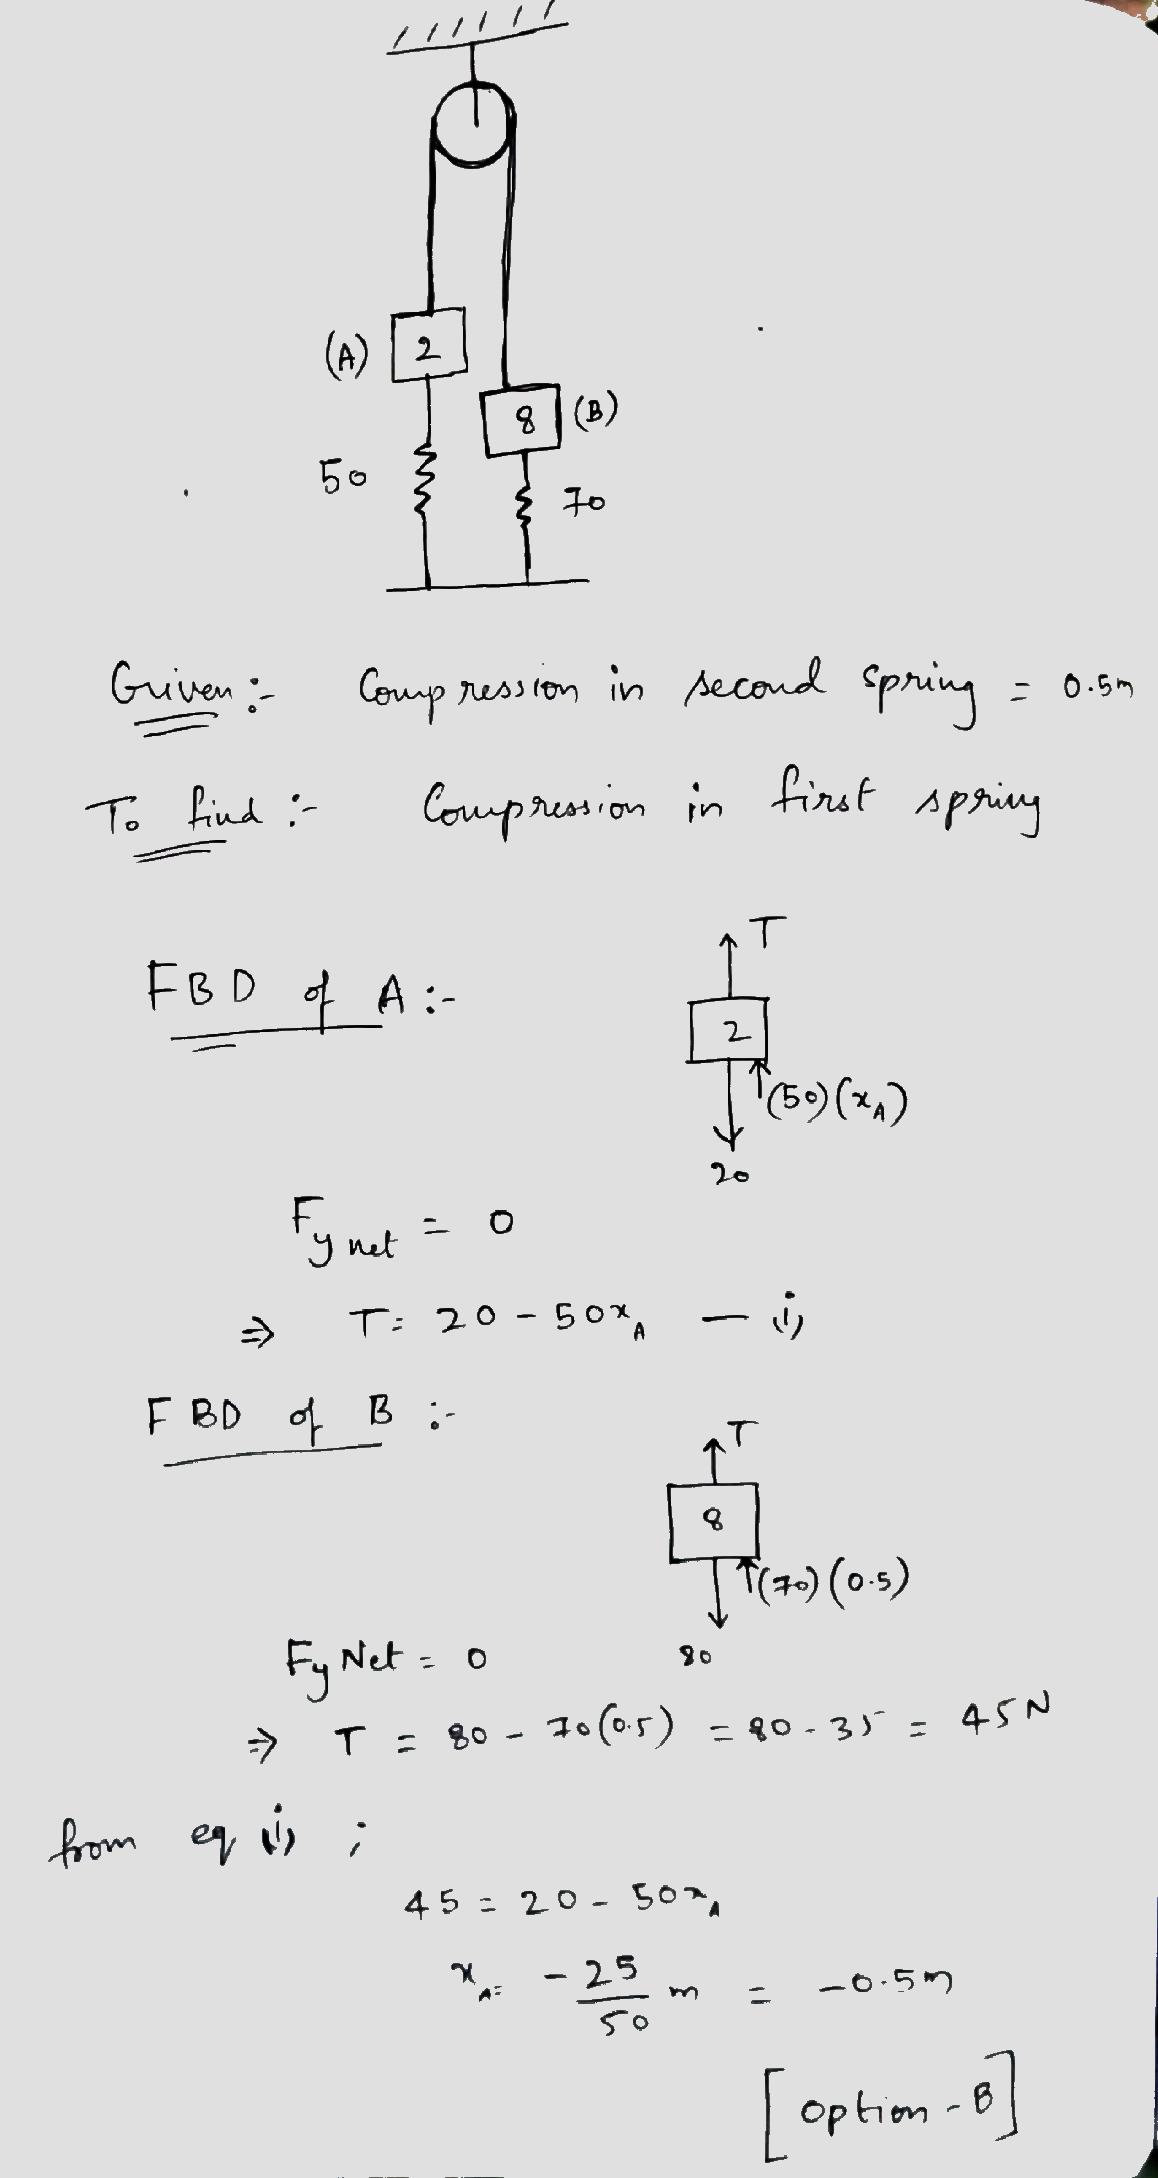 (A) 2
8 (B)
50
70
Given :- Compression in second spring = 0.5m
To find :- Compression in first spring
T
FBD of A :-
2
(50)(xA)
20
Fy net = 0
⇒ T = 20 - 50xA — (i)
FBD of B :-
T
8
(70)(0.5)
Fy Net = 0
80
⇒ T = 80 - 70(0.5) = 80 - 35 = 45N
from eq (i) ;
45 = 20 - 50xA
xA = - 25/50 m = -0.5m
[option - B]